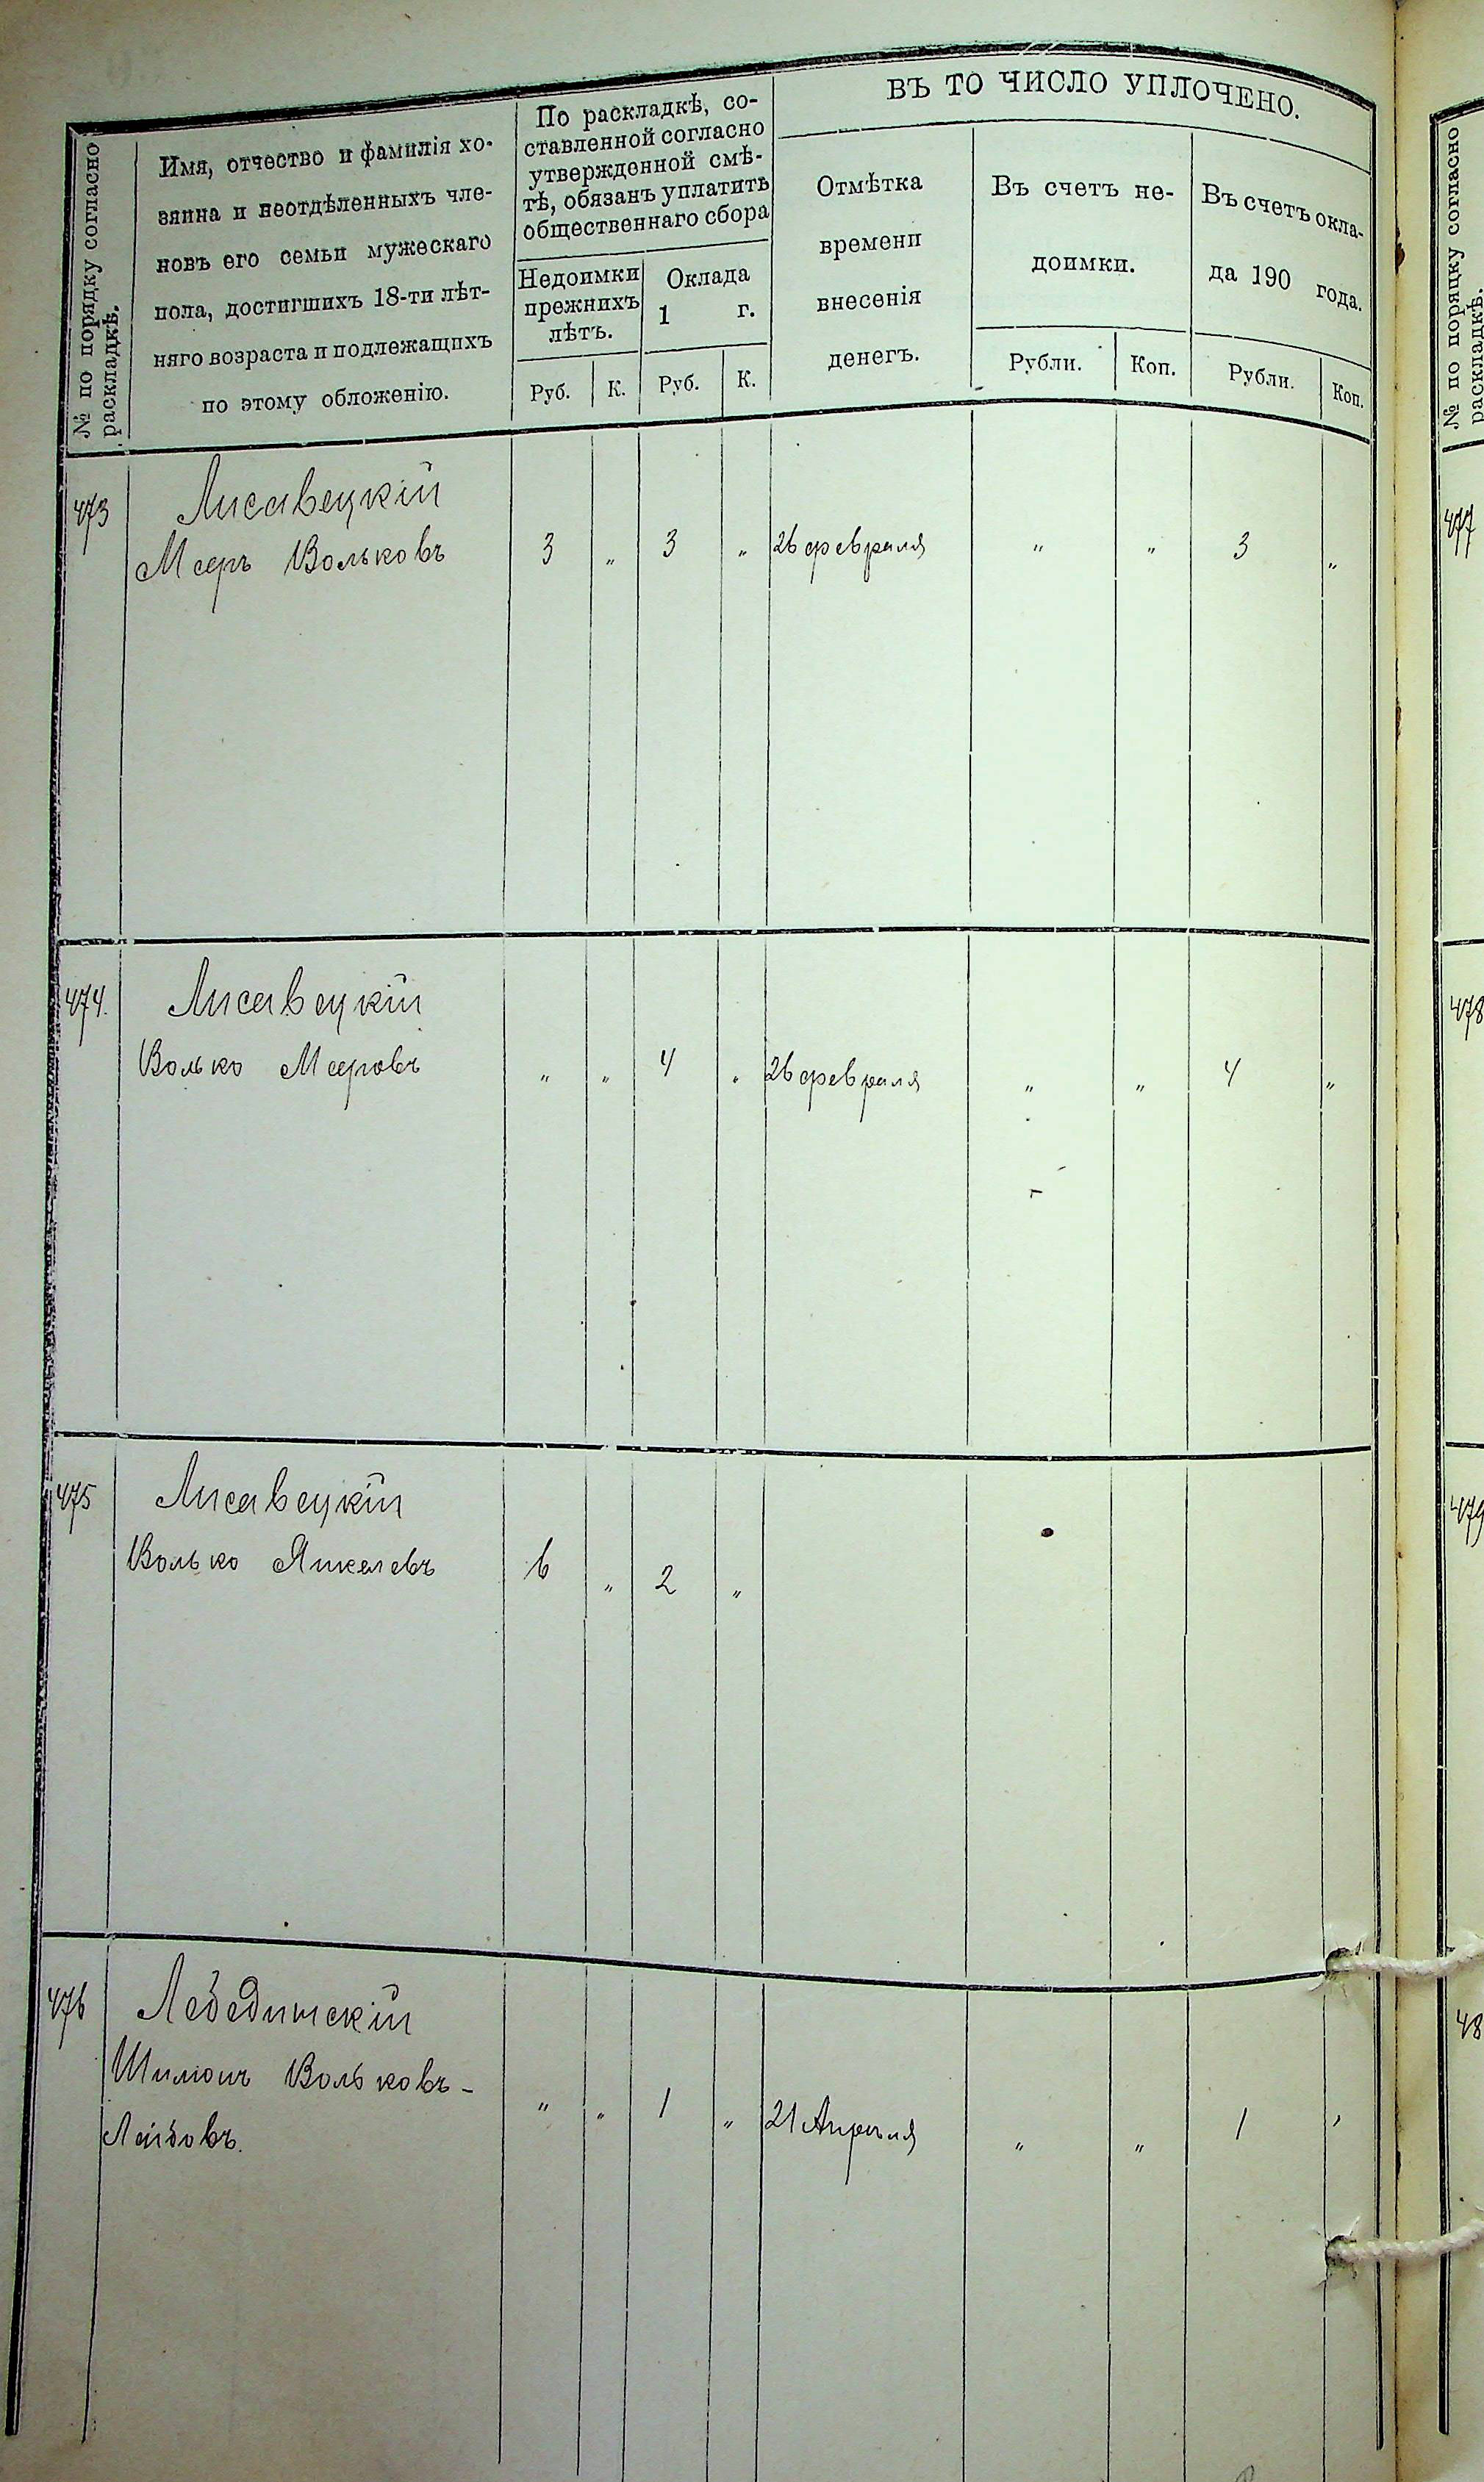 № по порядку согласно
раскладкѣ.
Имя, отчество и фамилія хо-
зяина и неотдѣленныхъ чле-
новъ его семьи мужескаго
пола, достигшихъ 18-ти лѣт-
няго возраста и подлежащихъ
по этому обложенію.
По раскладкѣ, со-
ставленной согласно
утвержденной смѣ-
тѣ, обязанъ уплатить
общественнаго сбора
Недоимки
прежнихъ
лѣтъ.
Оклада
1 г.
Руб. К. Руб. К.
ВЪ ТО ЧИСЛО УПЛОЧЕНО.
Отмѣтка
времени
внесенія
денегъ.
Въ счетъ не-
доимки.
Въ счетъ окла-
да 190 года.
Рубли. Коп. Рубли. Коп.
473 Лисавецкій
Мееръ Вольковъ 3 „ 3 „ 26 февраля „ „ 3 „
474. Лисавецкій
Волько Мееровъ „ „ 4 „ 26 февраля „ „ 4 „
475 Лисавецкій
Волько Янкелевъ 6 „ 2 „
476 Лебединскій
Шимонъ Вольковъ-
Лейбовъ. „ „ 1 „ 21 Апрѣля „ „ 1 ,
№ по порядку согласно
раскладкѣ.
477
478
479
48